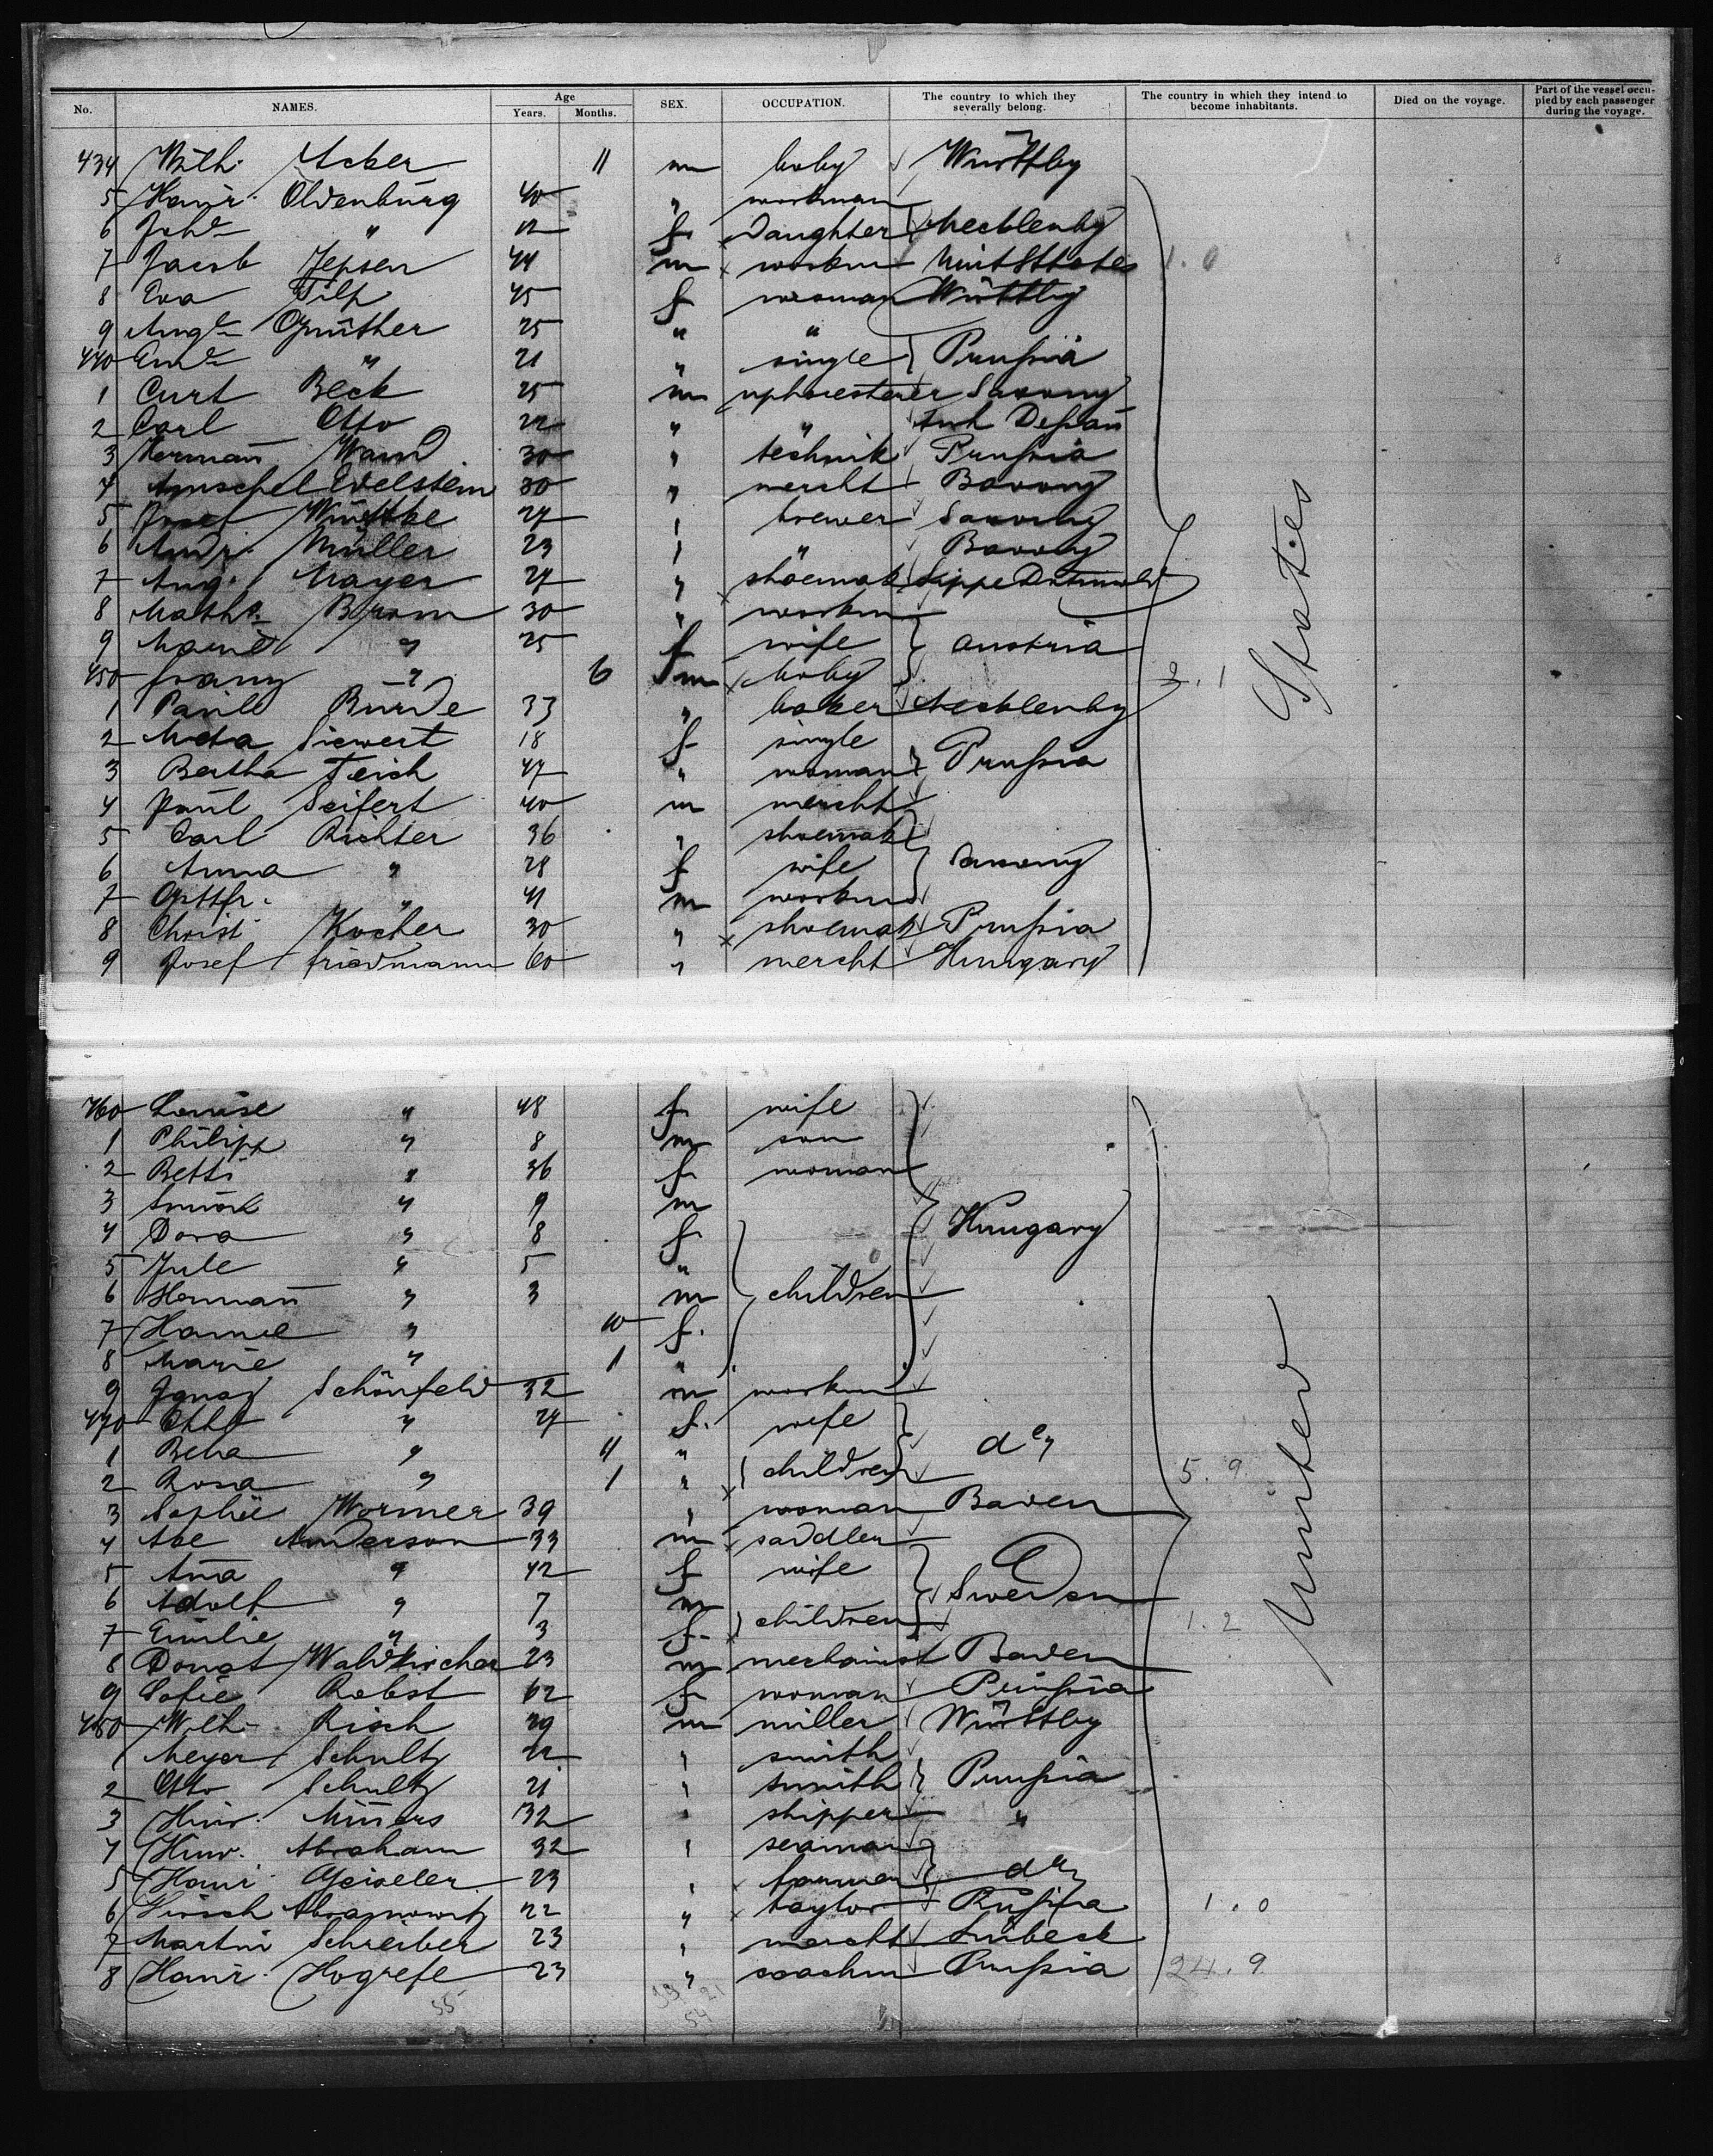 No. NAMES. Age Years. Months. SEX. OCCUPATION. The country to which they severally belong. The country in which they intend to become inhabitants. Died on the voyage. Part of the vessel occupied by each passenger during the voyage.
434 Wilh. Acker 11 m baby Württbg
5 Heinr. Oldenburg 40 " workman
6 Johe " 12 f Daughter Mecklenbg
7 Jacob Jepsen 44 m workm Unit States 1.0
8 Eva Filp 45 f woman Württbg
9 Auge Günther 25 " "
440 Eme " 21 " single Prussia
1 Curt Beck 25 m upholesterer Saxony
2 Carl Otto 22 " " Anh Dessau
3 Hermann Wand 30 " technik Prussia
4 Amschel Edelstein 30 " mercht Bavony
5 Josef 24 " brewer Saxony
6 Andr. Müller 23 " " Bavony
7 Aug. Mayer 24 " shoemak Lippe Detmold
8 Math. 30 " workm
9 Marie " 25 f wife Austria
450 Franz " 6 m baby 2.1
1 Paul Burde 33 " baker Mecklenbg
2 Meta Siewert 18 f single
3 Bertha Teich 47 " woman Prussia
4 Paul Seifert 40 m mercht
5 Carl Richter 36 " shoemak
6 Anna " 28 f wife Saxony
7 Gottfr. " 41 m workm
8 Christ Kocher 30 " shoemak Prussia
9 Josef Friedmann 60 " mercht Hungary
States
460 Louise " 48 f wife
1 Philipp " 8 m son
2 Betti " 36 f woman
3 " 9 m
4 Dora " 8 f Hungary
5 Jule " 5 "
6 Hermann " 3 m children
7 Hannie " 10 f.
8 Marie " 1 "
9 Ignaz Schönfeld 32 m workm
470 " 24 f. wife
1 Beha " 11 " do
2 Rosa " 1 " children 5.9
3 Sophie Wormer 39 " woman Baden
4 Abe Anderson 33 m saddler
5 Anna " 42 f wife
6 Adolf " 7 m Sweden
7 Emilie " 3 f. children 1.2
8 Donat Waldkircher 23 m mechanist Baden
9 Sofie Robst 62 f woman Prussia
480 Wilh. Risch 29 m miller Württbg
1 Meyer Schultz 22 " smith
2 Otto Schultz 21 " smith Prussia
3 Hinr. 32 " shipper "
4 Hinr. Abraham 32 " seaman
5 Heinr. Geiseler 23 " farmer do
6 Hirsch Abramowitz 22 " taylor Russia 1.0
7 Martin Schreiber 23 " mercht Lübeck
8 Heinr. Hogrefe 23 " coachm Prussia 24.9
United
55 33 21
54